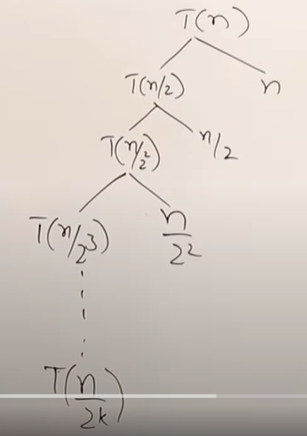 T(n)
T(n/2) n
T(n/2²) n/2
T(n/2³) n/2²
T(n/2k)